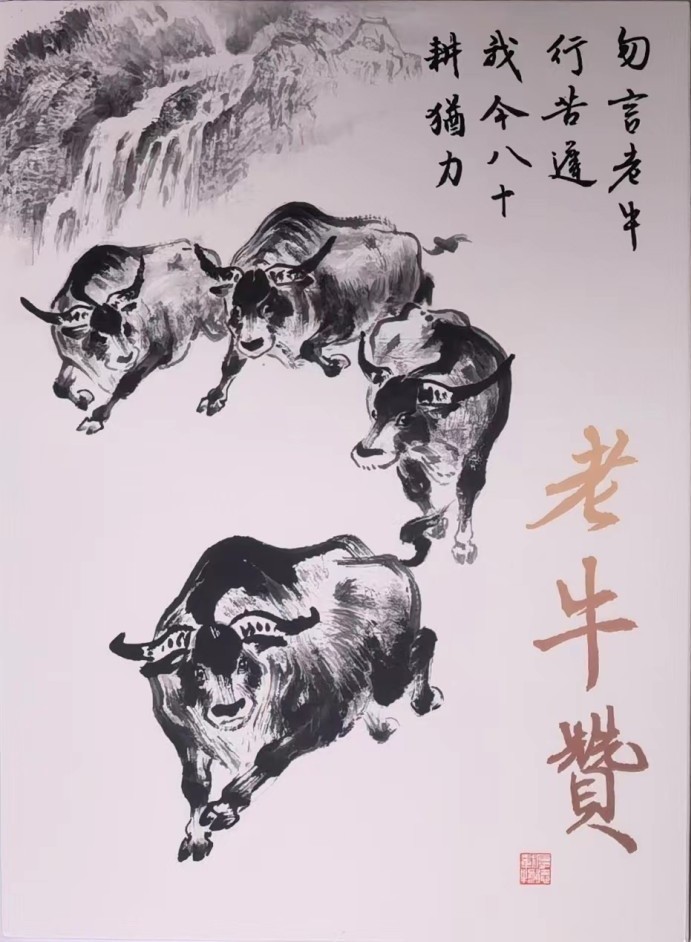 勿言老牛
行苦遲
我今八十
耕猶力
老牛贊